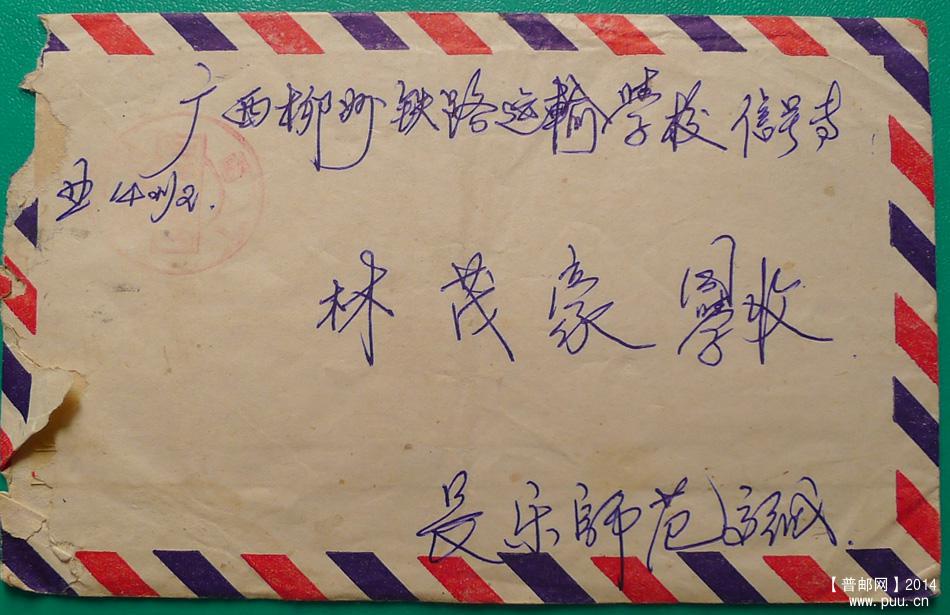 广西柳州铁路运輸学校信号专
业14班2.
林茂豪同学收
長乐師范緘.
【普邮网】2014
www.puu.cn